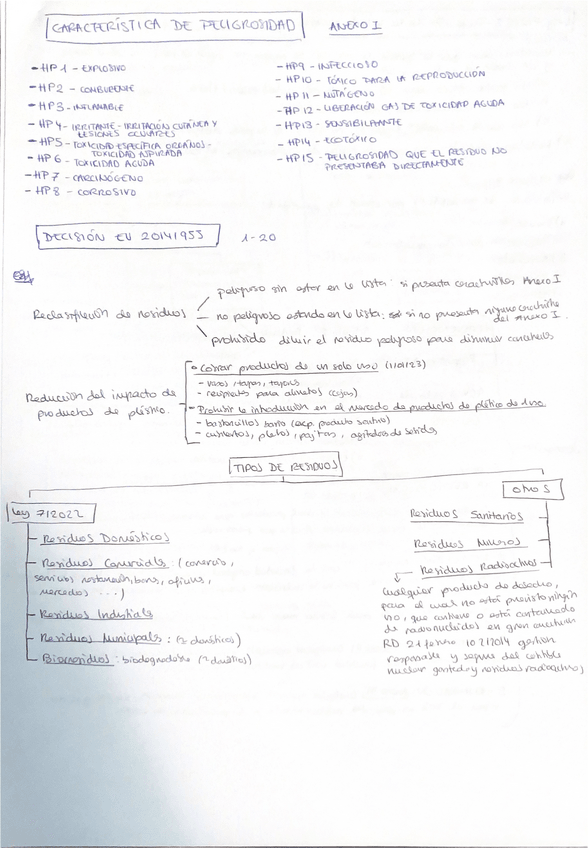 CARACTERÍSTICA DE PELIGROSIDAD ANEXO I
- HP 1 - EXPLOSIVO
- HP2 - COMBURENTE
- HP3 - INFLAMABLE
- HP4 - IRRITANTE - IRRITACIÓN CUTÁNEA Y
LESIONES OCULARES
- HP5 - TOXICIDAD ESPECÍFICA ORGANOS -
TOXICIDAD ASPIRADA
- HP 6 - TOXICIDAD AGUDA
- HP7 - CARCINÓGENO
- HP8 - CORROSIVO
- HP9 - INFECCIOSO
- HP10 - TÓXICO PARA LA REPRODUCCIÓN
- HP 11 - MUTÁGENO
- HP 12 - LIBERACIÓN GAS DE TOXICIDAD AGUDA
- HP13 - SENSIBILIZANTE
- HP14 - ECOTÓXICO
- HP15 - PELIGROSIDAD QUE EL RESIDUO NO
PRESENTABA DIRECTAMENTE
DECISIÓN EU 2014/955 1-20
Reclasificación de residuos
peligroso sin estar en la lista: si presenta características Anexo I
no peligroso estando en la lista: si no presenta ninguna característica
del Anexo I.
prohibido diluir el residuo peligroso para disminuir
Reducción del impacto de
productos de plástico.
• Cobrar productos de un solo uso (1/01/23)
- vasos, tapas, tapones
- recipientes para alimentos (cajas)
• Prohibir la introducción en el mercado de productos de plástico de 1 uso
- bastoncillos (excp. producto sanitario)
- cubiertos, platos, pajitas, agitadores de bebidas
TIPOS DE RESIDUOS
Ley 7/2022
- Residuos Domésticos
- Residuos Comerciales: (comercio,
servicios restauración, bares, oficinas,
mercados ...)
- Residuos Industriales
- Residuos Municipales: (≈ domésticos)
- Biorresiduos: biodegradable (≈ domésticos)
OTROS
Residuos Sanitarios
Residuos Mineros
Residuos Radioactivos
Cualquier producto de desecho,
para el cual no está previsto ningún
uso, que contiene o está contaminado
de radionucleidos en gran
RD 21 febrero 102/2014 gestión
responsable y segura del combustible
nuclear gastado y residuos radioactivos